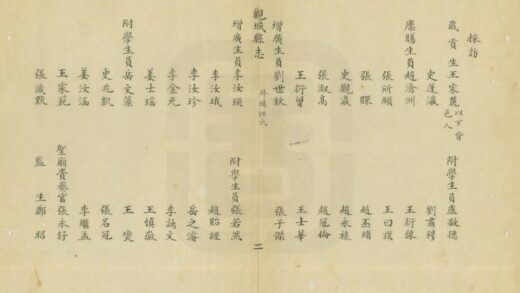 採訪
歲貢生王家麓以下皆邑人
史蓬瀛
廩膳生員趙滄洲
張所頤
張
史觀瀛
張淑高
王衍曾
增廣生員劉世欽
附學生員盧
劉書
王衍
王曰
趙丕緒
趙永祿
趙冠倫
王士華
張子傑
觀城縣志
修志姓氏
二
增廣生員李汝瑛
李汝珴
李汝珍
李金元
姜士瑤
附學生員岳文藻
史兆凱
姜汝涵
王家苑
張識默
附學生員張若
趙貽經
岳之濬
李誦文
王慎徽
王燮
張名冠
李繼孟
聖廟賣奏官張永舒
監生鄭昭